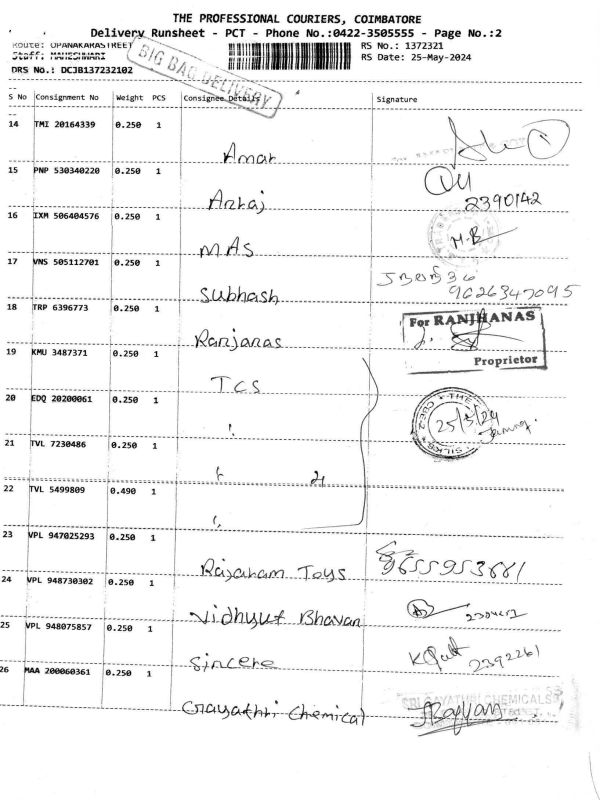 THE PROFESSIONAL COURIERS, COIMBATORE
Delivery Runsheet - PCT - Phone No.:0422-3505555 - Page No.:2
Route: OPANAKARASTREET
RS No.: 1372321
Staff: MAHESHWARI
RS Date: 25-May-2024
DRS No.: DCJB137232102
BIG BAG DELIVERY
S No Consignment No Weight PCS Consignee Details Signature
14 TMI 20164339 0.250 1
Amar
15 PNP 530340220 0.250 1
Anraj
2390142
16 IXM 506404576 0.250 1
MAS
M.B
17 VNS 505112701 0.250 1
Subhash
9626347095
18 TRP 6396773 0.250 1
Ranjanas
For RANJHANAS
Proprietor
19 KMU 3487371 0.250 1
TCS
20 EDQ 20200061 0.250 1
"
25/5/24
21 TVL 7230486 0.250 1
" 4
22 TVL 5499809 0.490 1
"
23 VPL 947025293 0.250 1
Rajaram Toys
24 VPL 948730302 0.250 1
Vidhyut Bhavan
25 VPL 948075857 0.250 1
Sincere
2392261
26 MAA 200060361 0.250 1
Gayathri Chemical
SRI GAYATHRI CHEMICALS